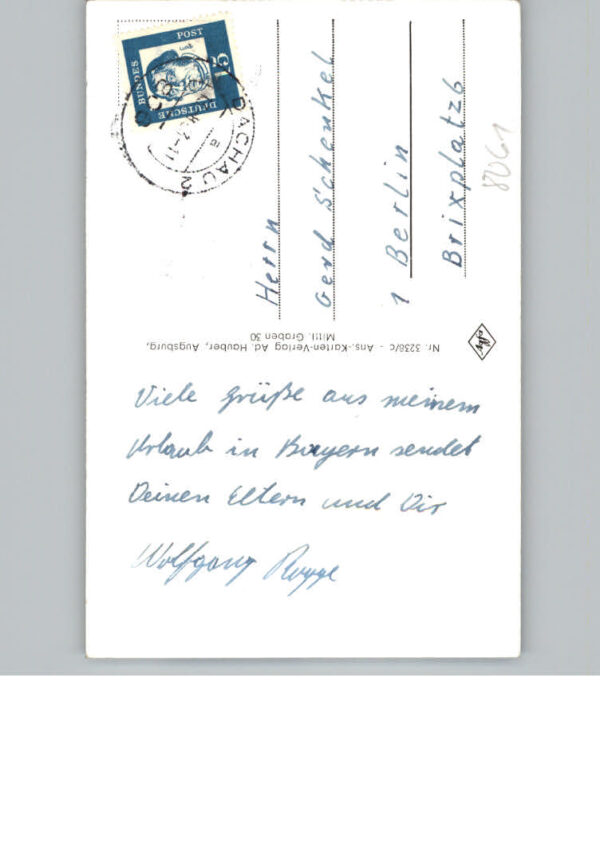 DEUTSCHE BUNDESPOST
15
DACHAU 2
a
Herrn
Gerd Schenkel
1 Berlin
Brixplatz 6
8061
Nr. 3238/c – Ans.-Karten-Verlag Ad. Hauber, Augsburg,
Mittl. Graben 30
Agfa
Viele Grüße aus meinem
Urlaub in Bayern sendet
Deinen Eltern und Dir
Wolfgang